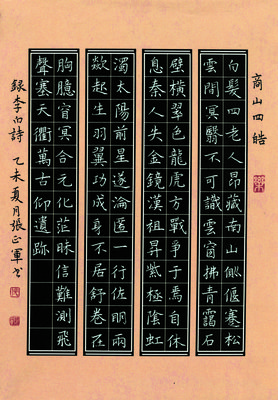 商山四皓
白髮四老人昂藏南山側偃蹇松
雲間冥翳不可識雲窗拂青靄石
壁橫翠色龍虎方戰爭于焉自休
息秦人失金鏡漢祖昇紫極陰虹
濁太陽前星遂淪匿一行佐明兩
欻起生羽翼功成身不居舒卷在
胸臆窅冥合元化茫昧信難測飛
聲塞天衢萬古仰遺跡
錄李白詩 乙未夏月張正軍书